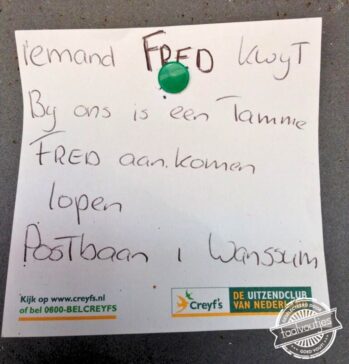 iemand FRED kwyt
By ons is een Tamme
FRED aan.komen
lopen
Postbaan 1 Wanssum
Kijk op www.creyfs.nl
of bel 0600-BELCREYFS
Creyf's
DE UITZENDCLUB
VAN NEDERL
taalvoutjes